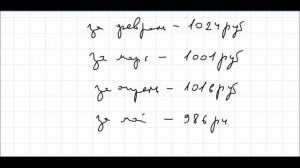 за февраль – 1024 руб
за март – 1001 руб
за апрель – 1016 руб
за май – 986 руб